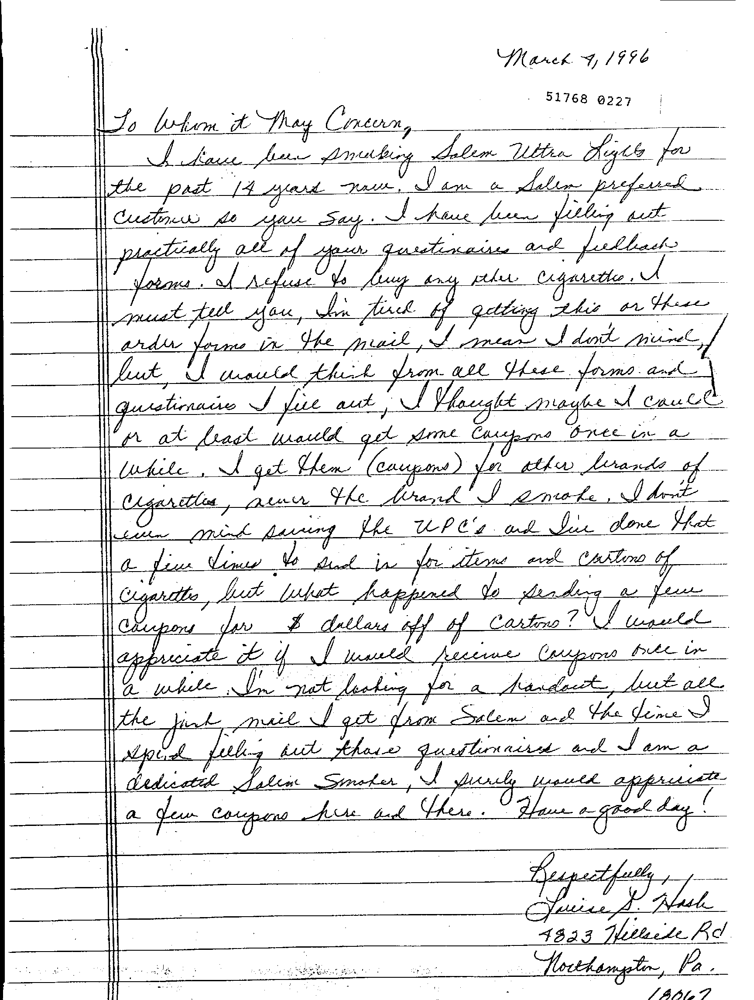 March 4, 1996
51768 0227
To Whom it May Concern,
I have been smoking Salem Ultra Lights for
the past 14 years now. I am a Salem preferred
Customer so you say. I have been filling out
practically all of your questinaires and feedback
forms. I refuse to buy any other cigarettes. I
must tell you, I'm tired of getting this or these
order forms in the mail, I mean I don't mind,
but, I would think from all these forms and
questionaires I fill out, I thought maybe I could
or at least would get some coupons once in a
while. I get them (coupons) for other brands of
cigarettes, never the brand I smoke. I don't
even mind saving the UPC's and I've done that
a few times to send in for items and cartons of
cigarettes, but what happened to sending a few
coupons for $ dollars off of cartons? I would
appriciate it if I would receive coupons once in
a while. I'm not looking for a handout, but all
the junk mail I get from Salem and the time I
spend filling out those questionnaires and I am a
dedicated Salem Smoker, I surely would appriciate
a few coupons here and there. Have a good day!
Respectfully,
Louise S. Hash
4823 Hillside Rd
Northampton, Pa.
18067